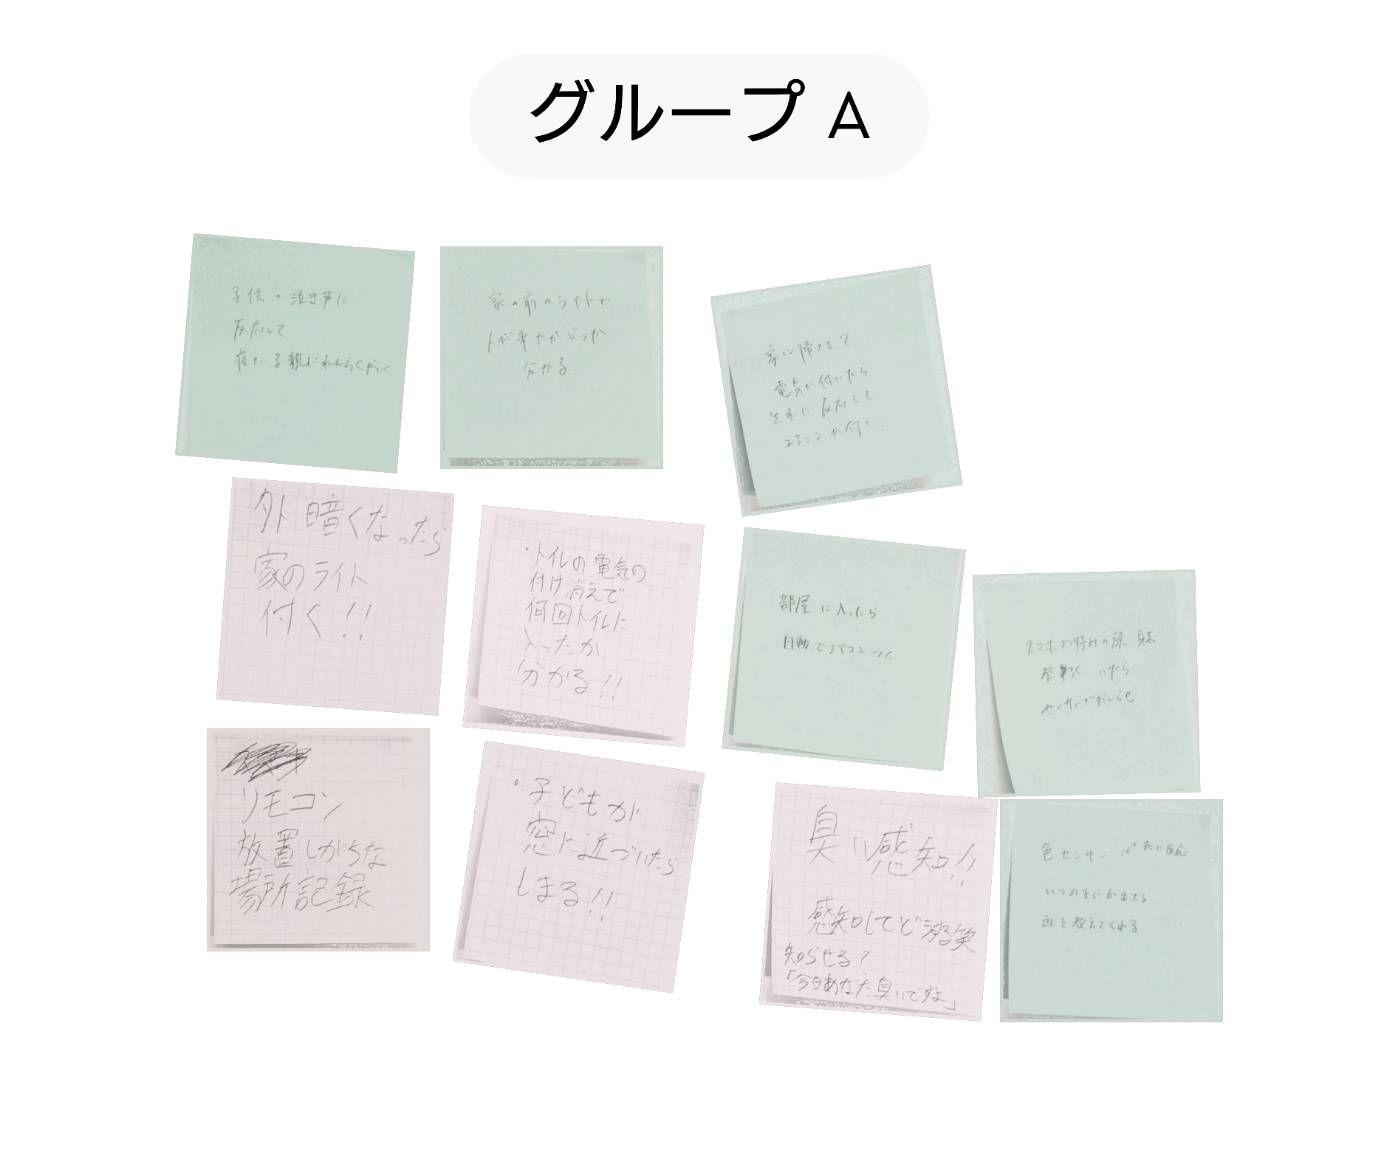 グループ A
子供の泣き声に
反応して
親にれんらくがいく
家の前のライトで
人が来たかどうか
分かる
家に帰ってきて
電気が付いたら
それに反応して
エアコンが付く
外暗くなったら
家のライト
付く!!
・トイレの電気の
付け消えで
何回トイレに
入ったか
分かる!!
部屋に入ったら
自動でエアコンつく
スマホで好みの
いたら
センサーがおしらせ
リモコン
放置しがちな
場所記録
・子どもが
窓に近づいたら
しまる!!
臭い感知!!
感知してど
知らせる?
「今日あなた臭いですよ」
色センサー 反応
いつのまにか出てる
血を教えてくれる